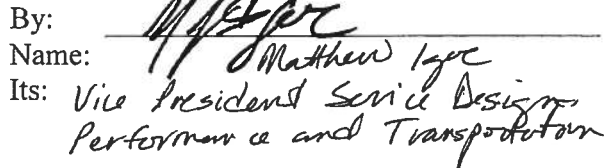 By:
Name: Matthew Igoe
Its: Vice President Service Design,
Performance and Transportation